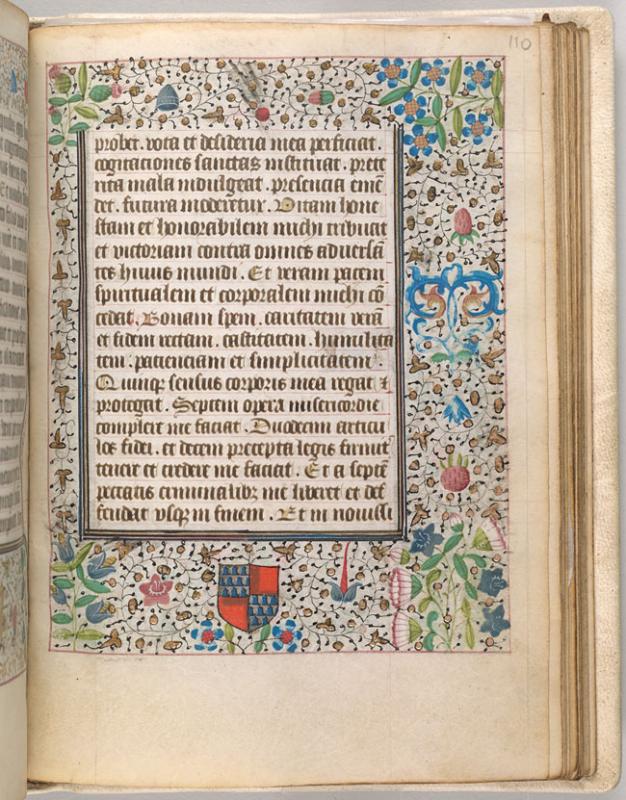 110
probet. vota et desideria mea perficiat.
cogitaciones sanctas instituat. prete
rita mala indulgeat. presencia emē
det. futura moderetur. Vitam hone
stam et honorabilem michi tribuat
et victoriam contra omnes adversā
tes huius mundi. Et veram pacem
spiritualem et corporalem michi cō
cedat. Bonam spem. caritatem verā
et fidem rectam. castitatem. humilita
tem. patienciam et simplicitatem.
Quinqz sensus corporis mea regat &
protegat. Septem opera misericordie
complere me faciat. Duodecim articu
los fidei. et decem precepta legis firmit'
tenere et credere me faciat. Et a septē
peccatis criminalibz me liberet et def
fendat vsqz in finem. Et in nouissi